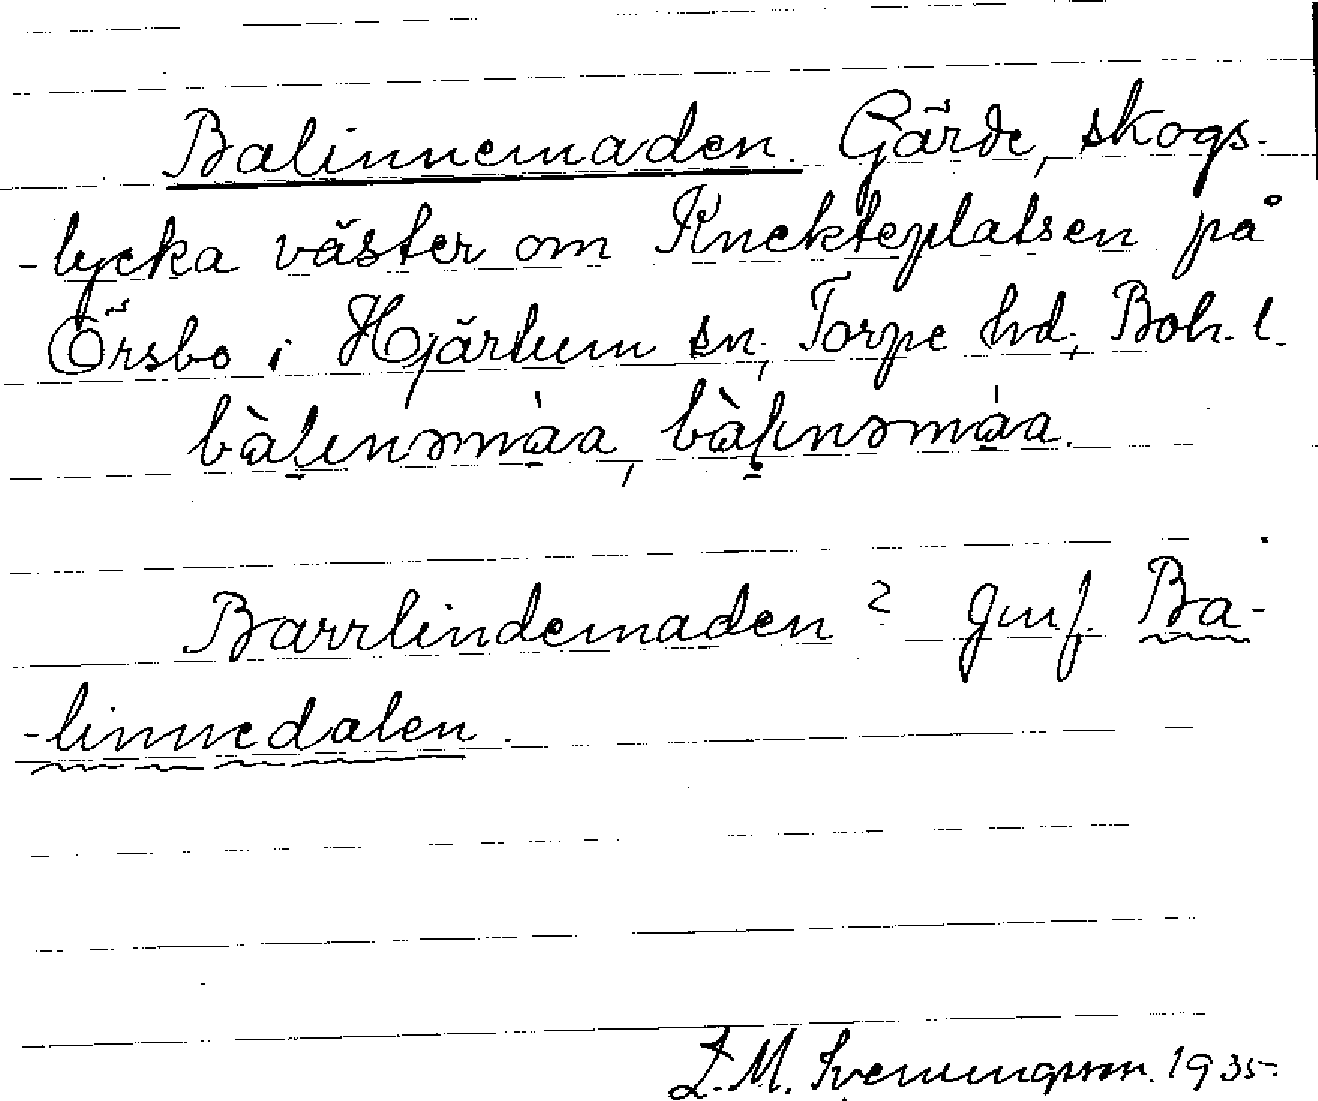 Balinnemaden. Gärde, skogs-
-lycka väster om Knekteplatsen på
Örsbo i Hjärtum sn, Torpe hd, Boh. l.
bàlinəmàa, bàlinəmàa.
Barrlindemaden? Jmf. Ba-
-linnedalen.
M. Svenungsson. 1935.